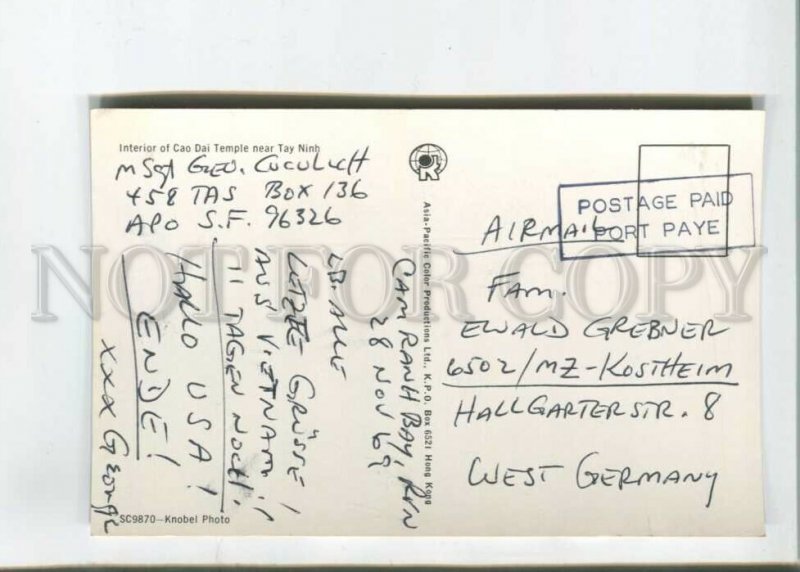 Interior of Cao Dai Temple near Tay Ninh
MSgt GEO. CUCULICH
458 TAS BOX 136
APO S.F. 96326
CAM RANH BAY, RVN
28 NOV 69
LB. ALLE
LETZTE GRÜSSE
AUS VIETNAM!!
11 TAGEN NOCH!
HALLO USA!
ENDE!
XXX George
SC9870—Knobel Photo
Asia-Pacific Color Productions Ltd., K.P.O. Box 6521 Hong Kong
POSTAGE PAID
PORT PAYE
AIRMAIL
FAM.
EWALD GREBNER
6502/MZ-KOSTHEIM
HALLGARTERSTR. 8
WEST GERMANY
NOT FOR COPY